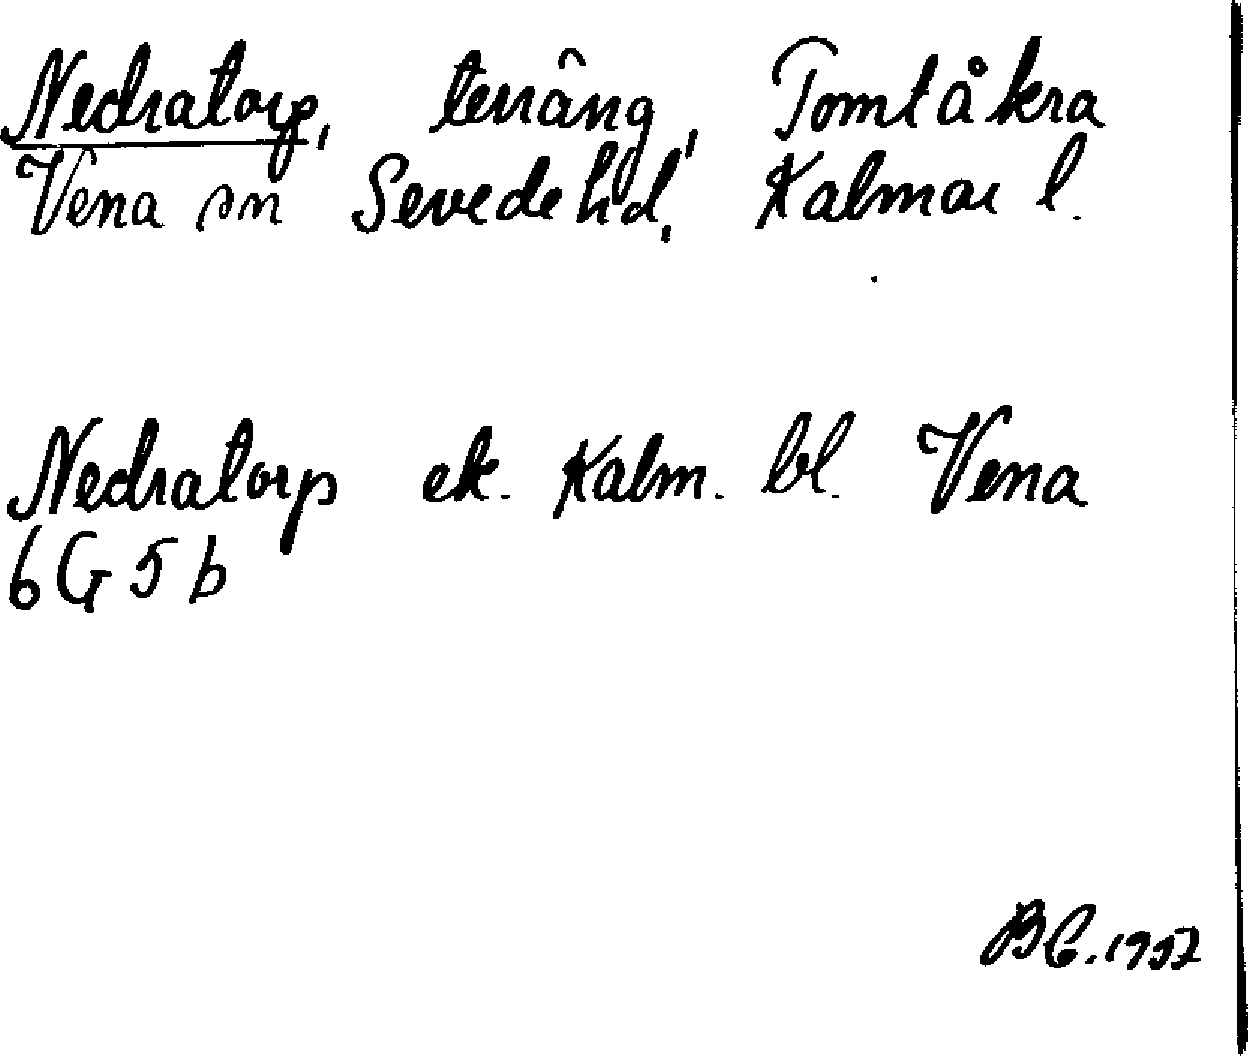 Nedratorp, terräng, Tomtåkra
Vena sn Sevede hd, Kalmar l.
Nedratorp ek. Kalm. bl. Vena
6G5b
BC.1957